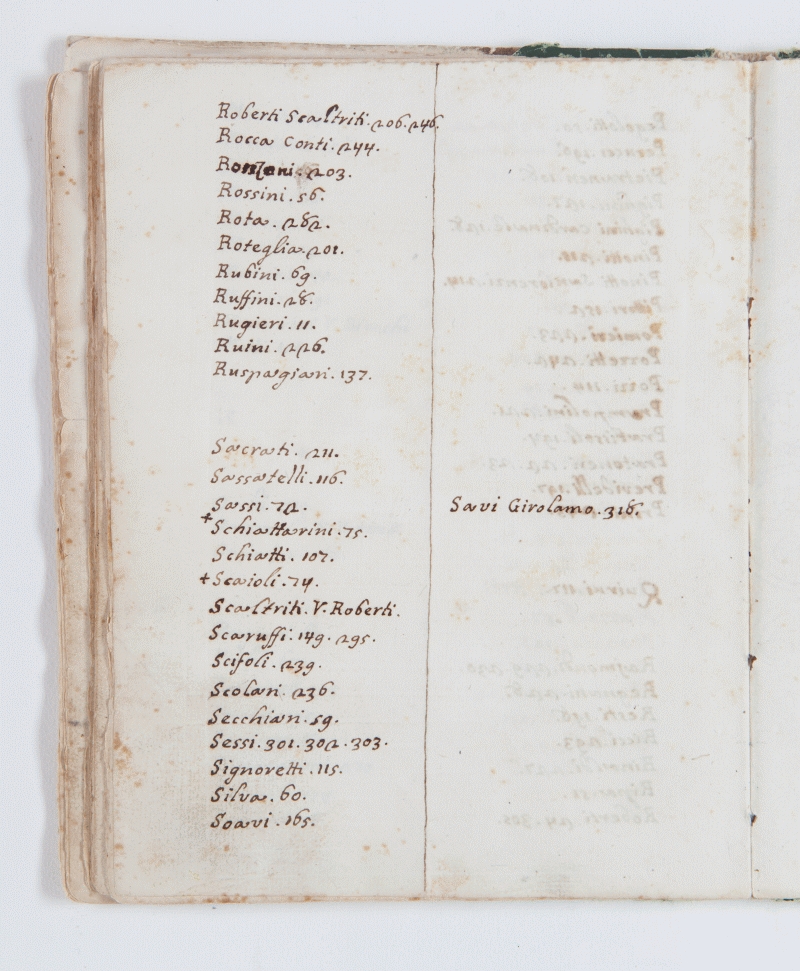 Roberti Scaltriti. 206. 246.
Rocca Conti. 244.
Ronzani. 203.
Rossini. 56.
Rota. 282.
Roteglia. 201.
Rubini. 69.
Ruffini. 28.
Rugieri. 11.
Ruini. 226.
Ruspagiari. 137.
Sacrati. 211.
Sassatelli. 116.
Sassi. 72.
+ Schiattarini. 75.
Schiatti. 107.
+ Scaioli. 74.
Scaltriti. V. Roberti.
Scaruffi. 149. 295.
Scifoli. 239.
Scolari. 236.
Secchiari. 59.
Sessi. 301. 302. 303.
Signoretti. 115.
Silva. 60.
Soavi. 165.
Savi Girolamo. 318.